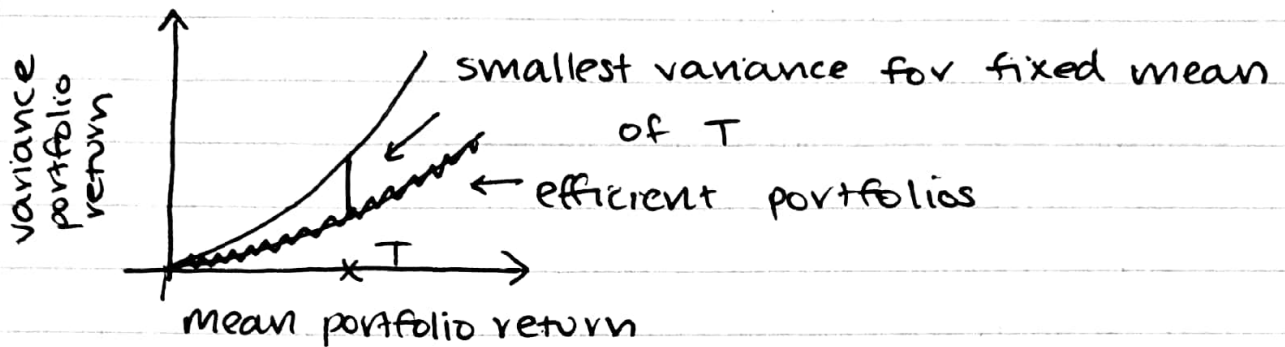 variance
portfolio
return
smallest variance for fixed mean
of T
efficient portfolios
T
mean portfolio return